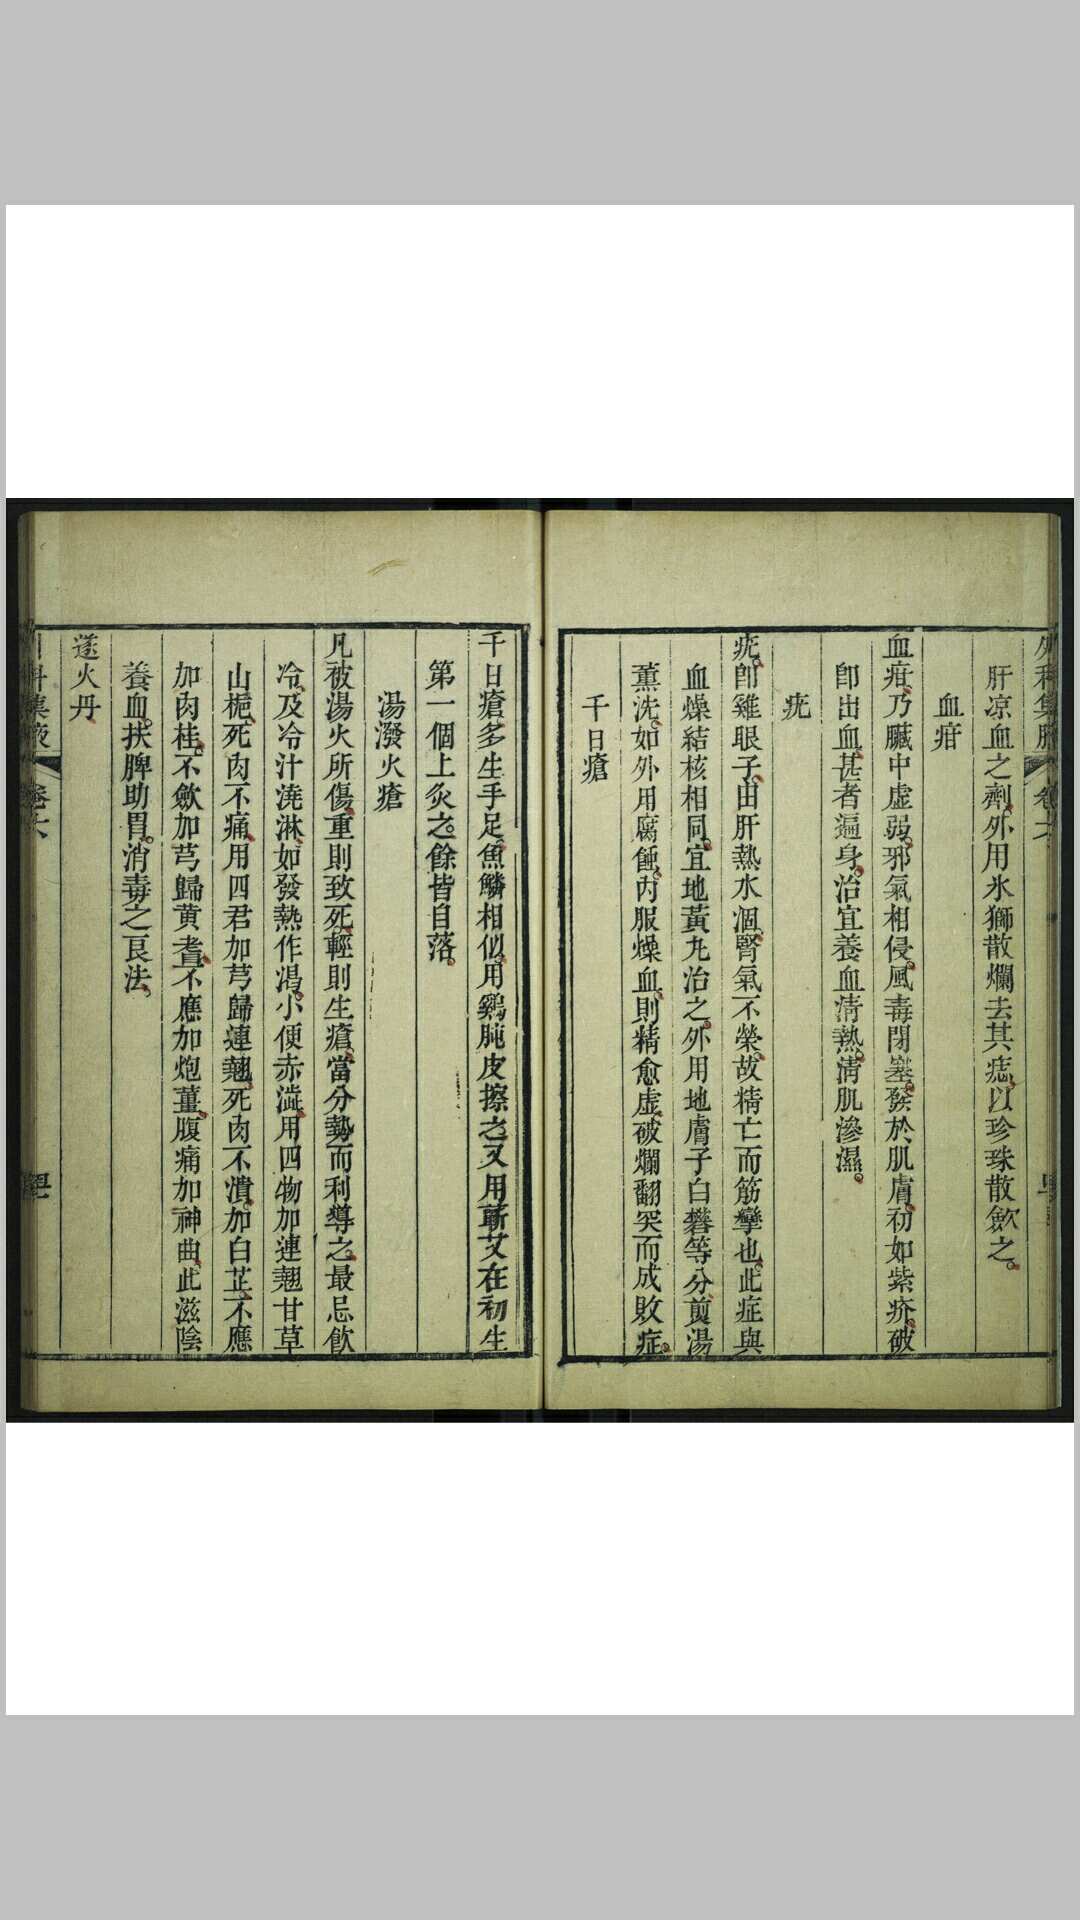 外科集腋 卷六
肝凉血之劑外用氷獅散爛去其痣以珍珠散斂之
血疳
血疳乃臟中虚弱邪氣相侵風毒閉塞發於肌膚初如紫疥破
卽出血甚者遍身治宜養血清熱清肌滲濕
疣
疣卽雞眼子由肝熱水涸腎氣不榮故精亡而筋攣也此症與
血燥結核相同宜地黃丸治之外用地膚子白礬等分煎湯
薰洗如外用腐蝕内服燥血則精愈虚破爛翻突而成敗症
千日瘡
千日瘡多生手足魚鱗相似用鷄肫皮擦之又用蘄艾在初生
第一個上灸之餘皆自落
湯潑火瘡
凡被湯火所傷重則致死輕則生瘡當分勢而利導之最忌飮
冷及冷汁澆淋如發熱作渴小便赤澁用四物加連翹甘草
山梔死肉不痛用四君加芎歸連翹死肉不潰加白芷不應
加肉桂不斂加芎歸黄耆不應加炮薑腹痛加神曲此滋陰
養血扶脾助胃消毒之良法
蓫火丹
外科集腋 卷六